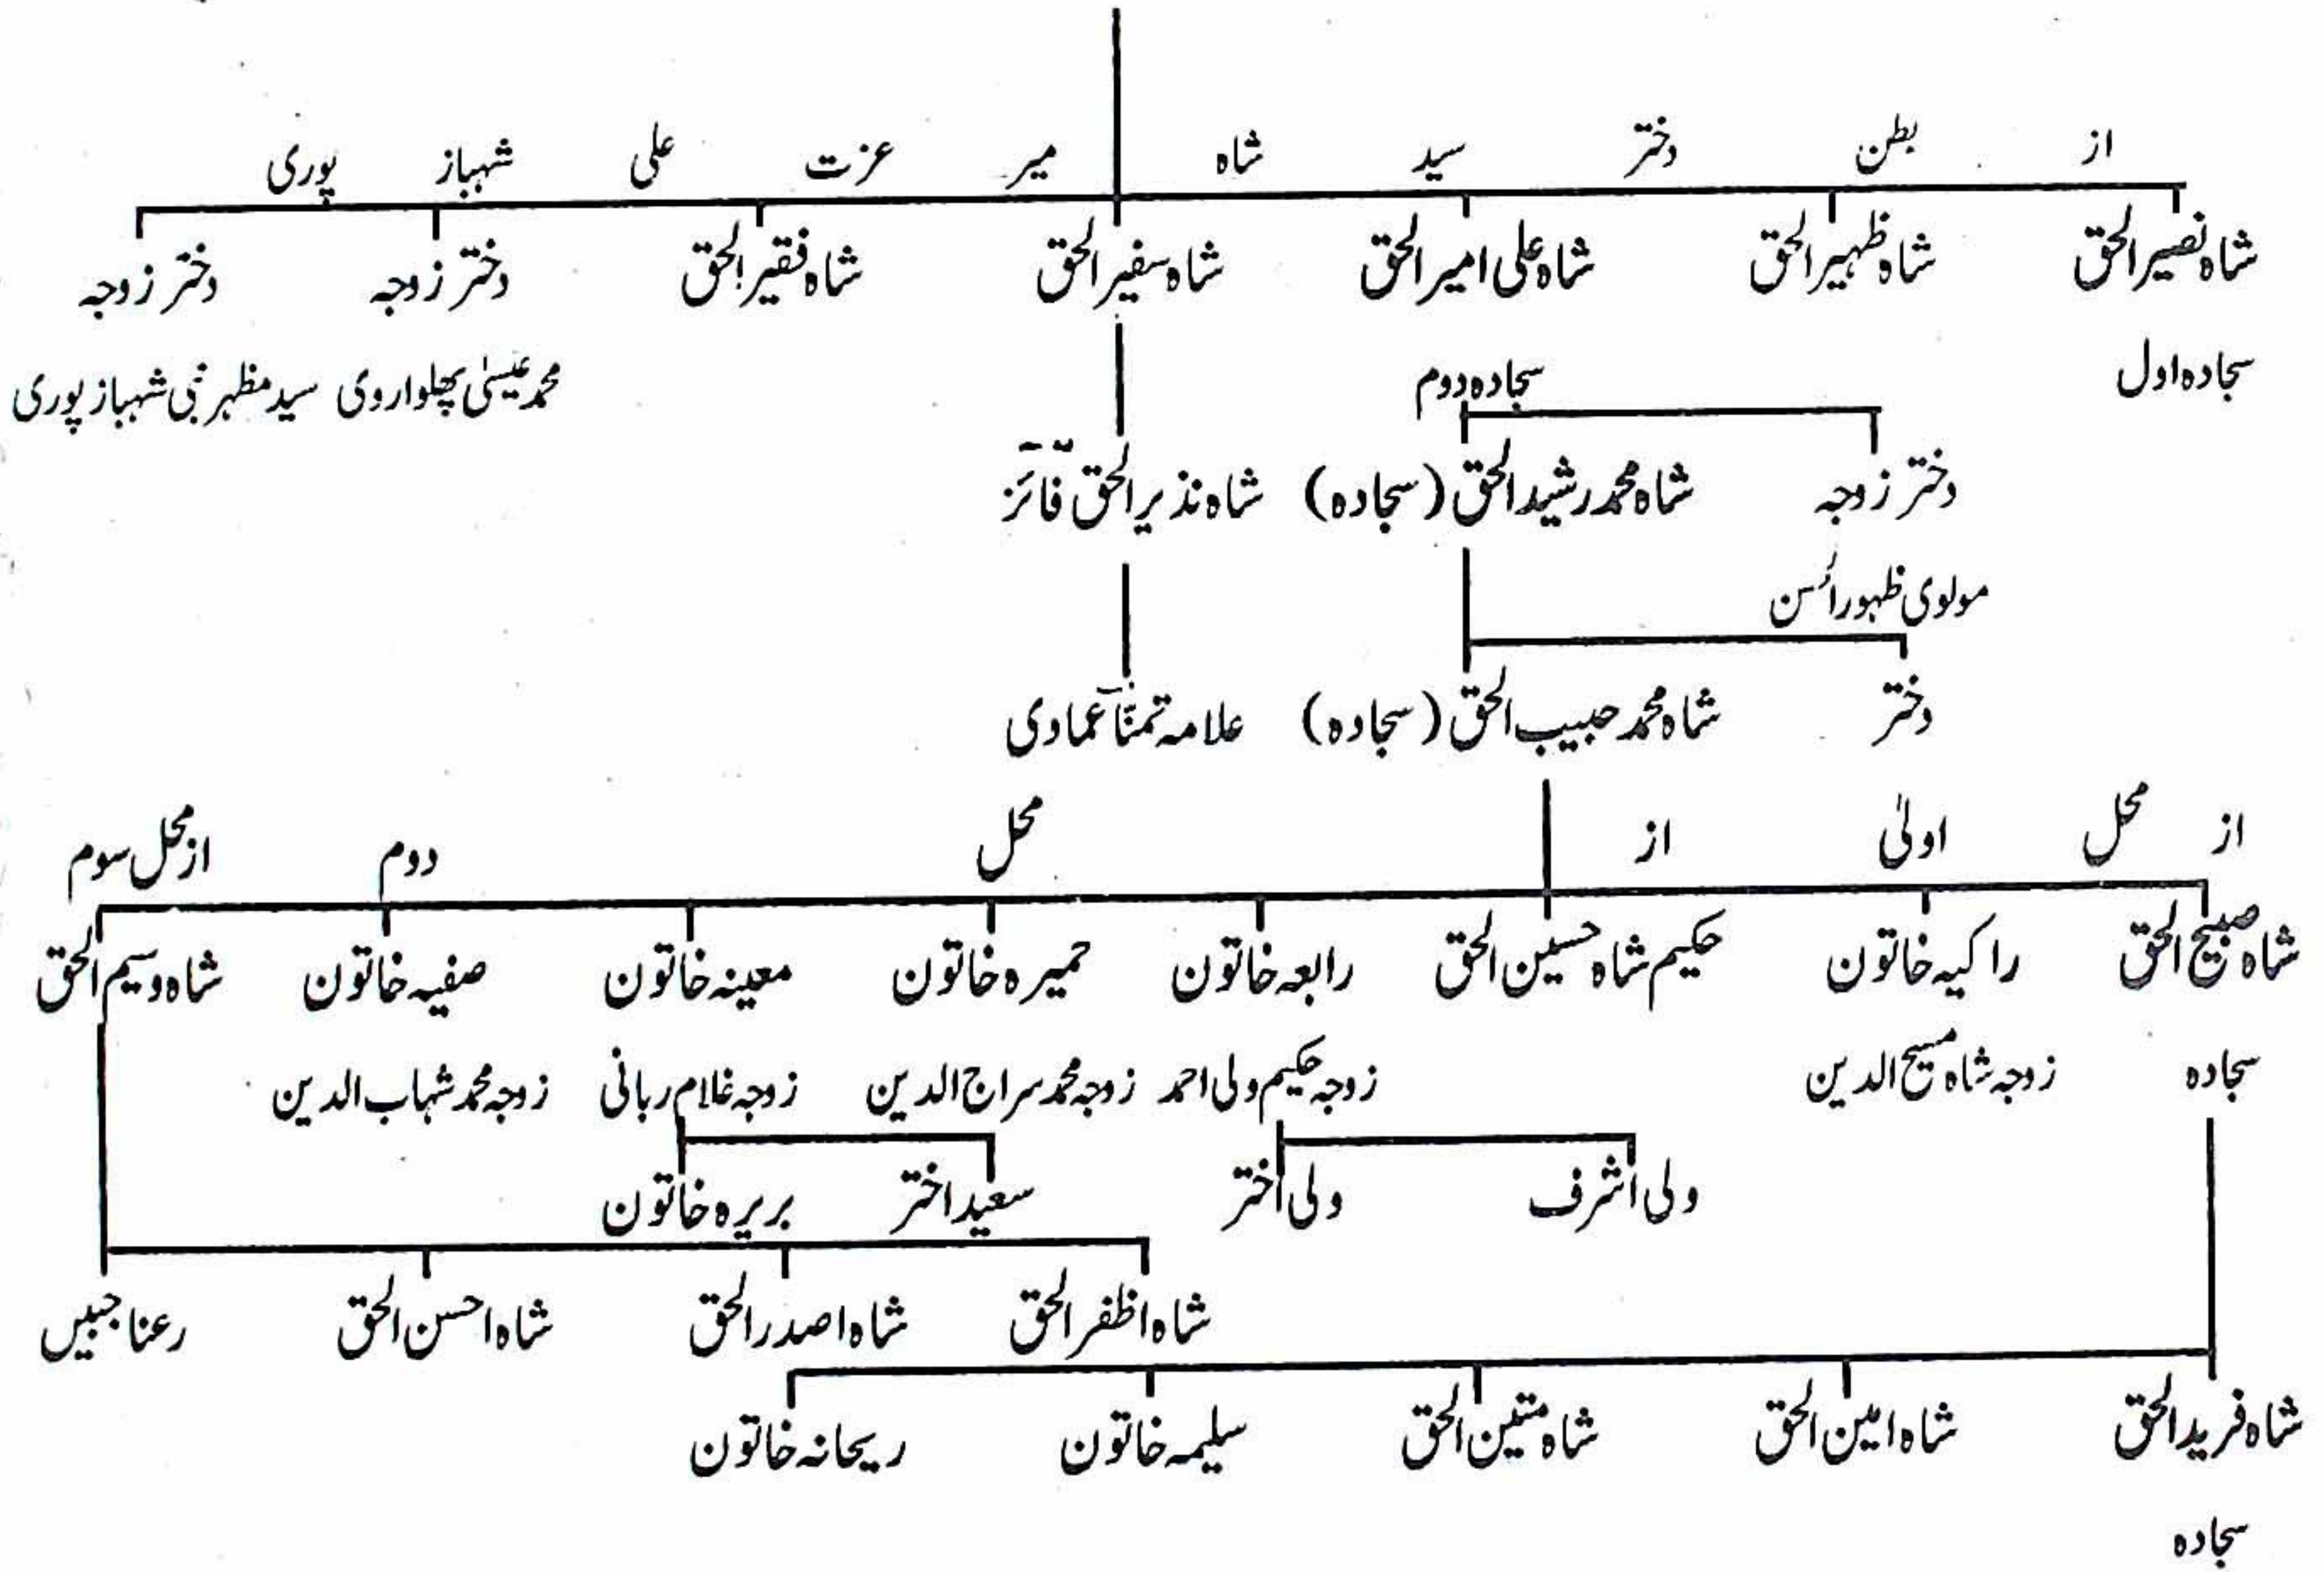 از بطن دختر سید شاہ میر عزت علی شہباز پوری
شاہ نصیر الحق شاہ ظہیر الحق شاہ علی امیر الحق شاہ سفیر الحق شاہ فقیر الحق دختر زوجہ دختر زوجہ
سجادہ اول سجادہ دوم محمد عیسیٰ پھلواروی سید مظہر نبی شہباز پوری
دختر زوجہ شاہ محمد رشید الحق (سجادہ) شاہ نذیر الحق فائز
مولوی ظہور الحسن
دختر شاہ محمد حبیب الحق (سجادہ) علامہ تمنا عمادی
از محل اولیٰ از محل دوم از محل سوم
شاہ صبیح الحق راکیہ خاتون حکیم شاہ حسین الحق رابعہ خاتون حمیرہ خاتون معینہ خاتون صفیہ خاتون شاہ وسیم الحق
سجادہ زوجہ شاہ مسیح الدین زوجہ حکیم ولی احمد زوجہ محمد سراج الدین زوجہ غلام ربانی زوجہ محمد شہاب الدین
ولی اشرف ولی اختر سعید اختر بریرہ خاتون
شاہ اظفر الحق شاہ اصدر الحق شاہ احسن الحق رعنا جبیں
شاہ فرید الحق شاہ امین الحق شاہ متین الحق سلیمہ خاتون ریحانہ خاتون
سجادہ